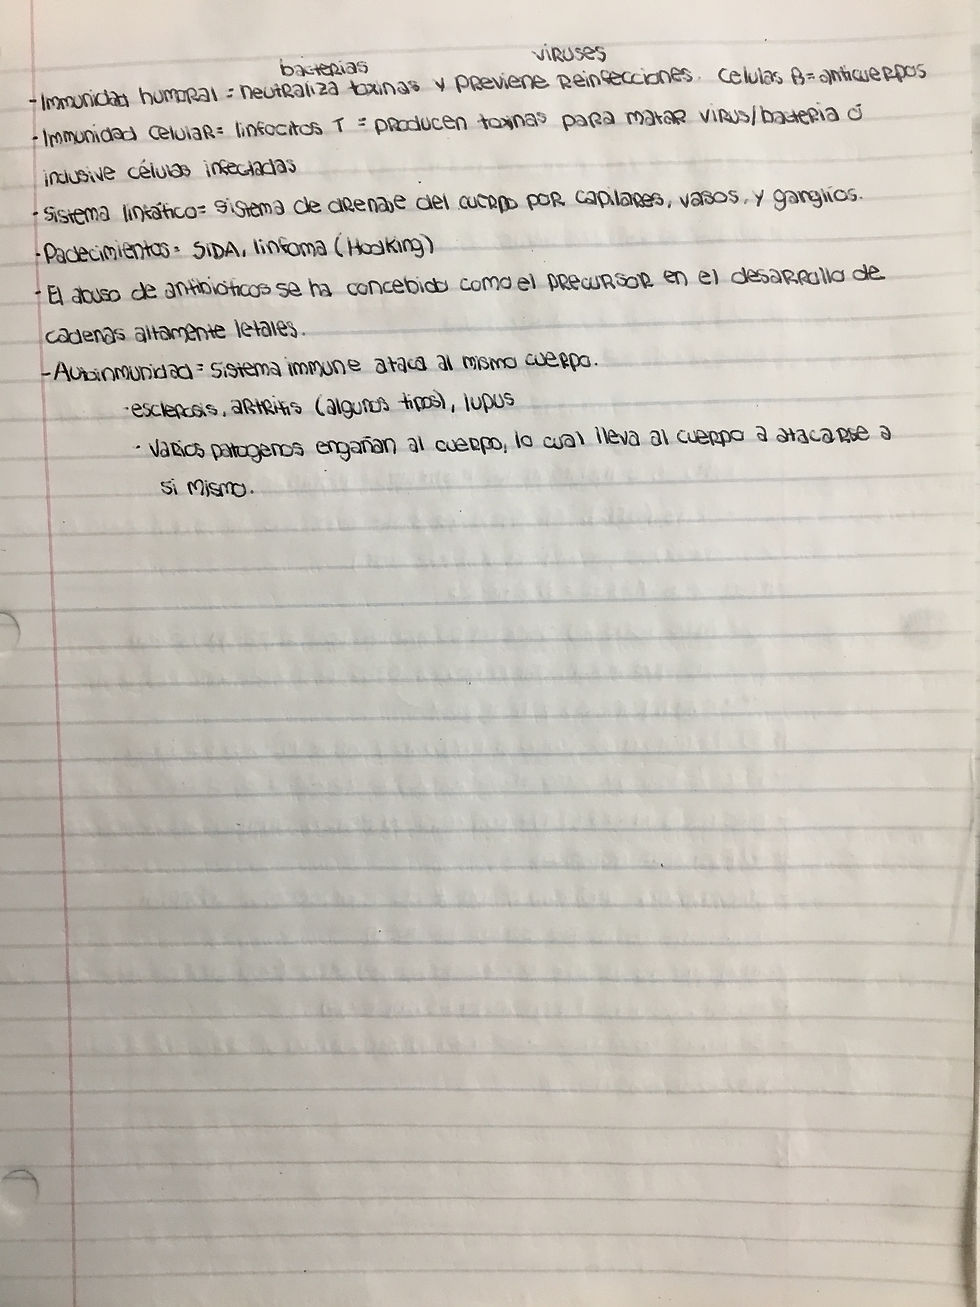 bacterias viruses
- Immunidad humoral = neutraliza toxinas y previene reinfecciones. Celulas B = anticuerpos
- Immunidad Celular = linfocitos T = producen toxinas para matar virus/bacteria ó
inclusive células infectadas
- Sistema linfático = sistema de drenaje del cuerpo por capilares, vasos, y ganglios.
- Padecimientos = SIDA, linfoma (Hodking)
- El abuso de antibioticos se ha concebido como el precursor en el desarrollo de
cadenas altamente letales.
- Autoinmunidad = Sistema immune ataca al mismo cuerpo.
- esclerosis, artritis (algunos tipos), lupus
- varios patogenos engañan al cuerpo, lo cual lleva al cuerpo a atacarse a
si mismo.